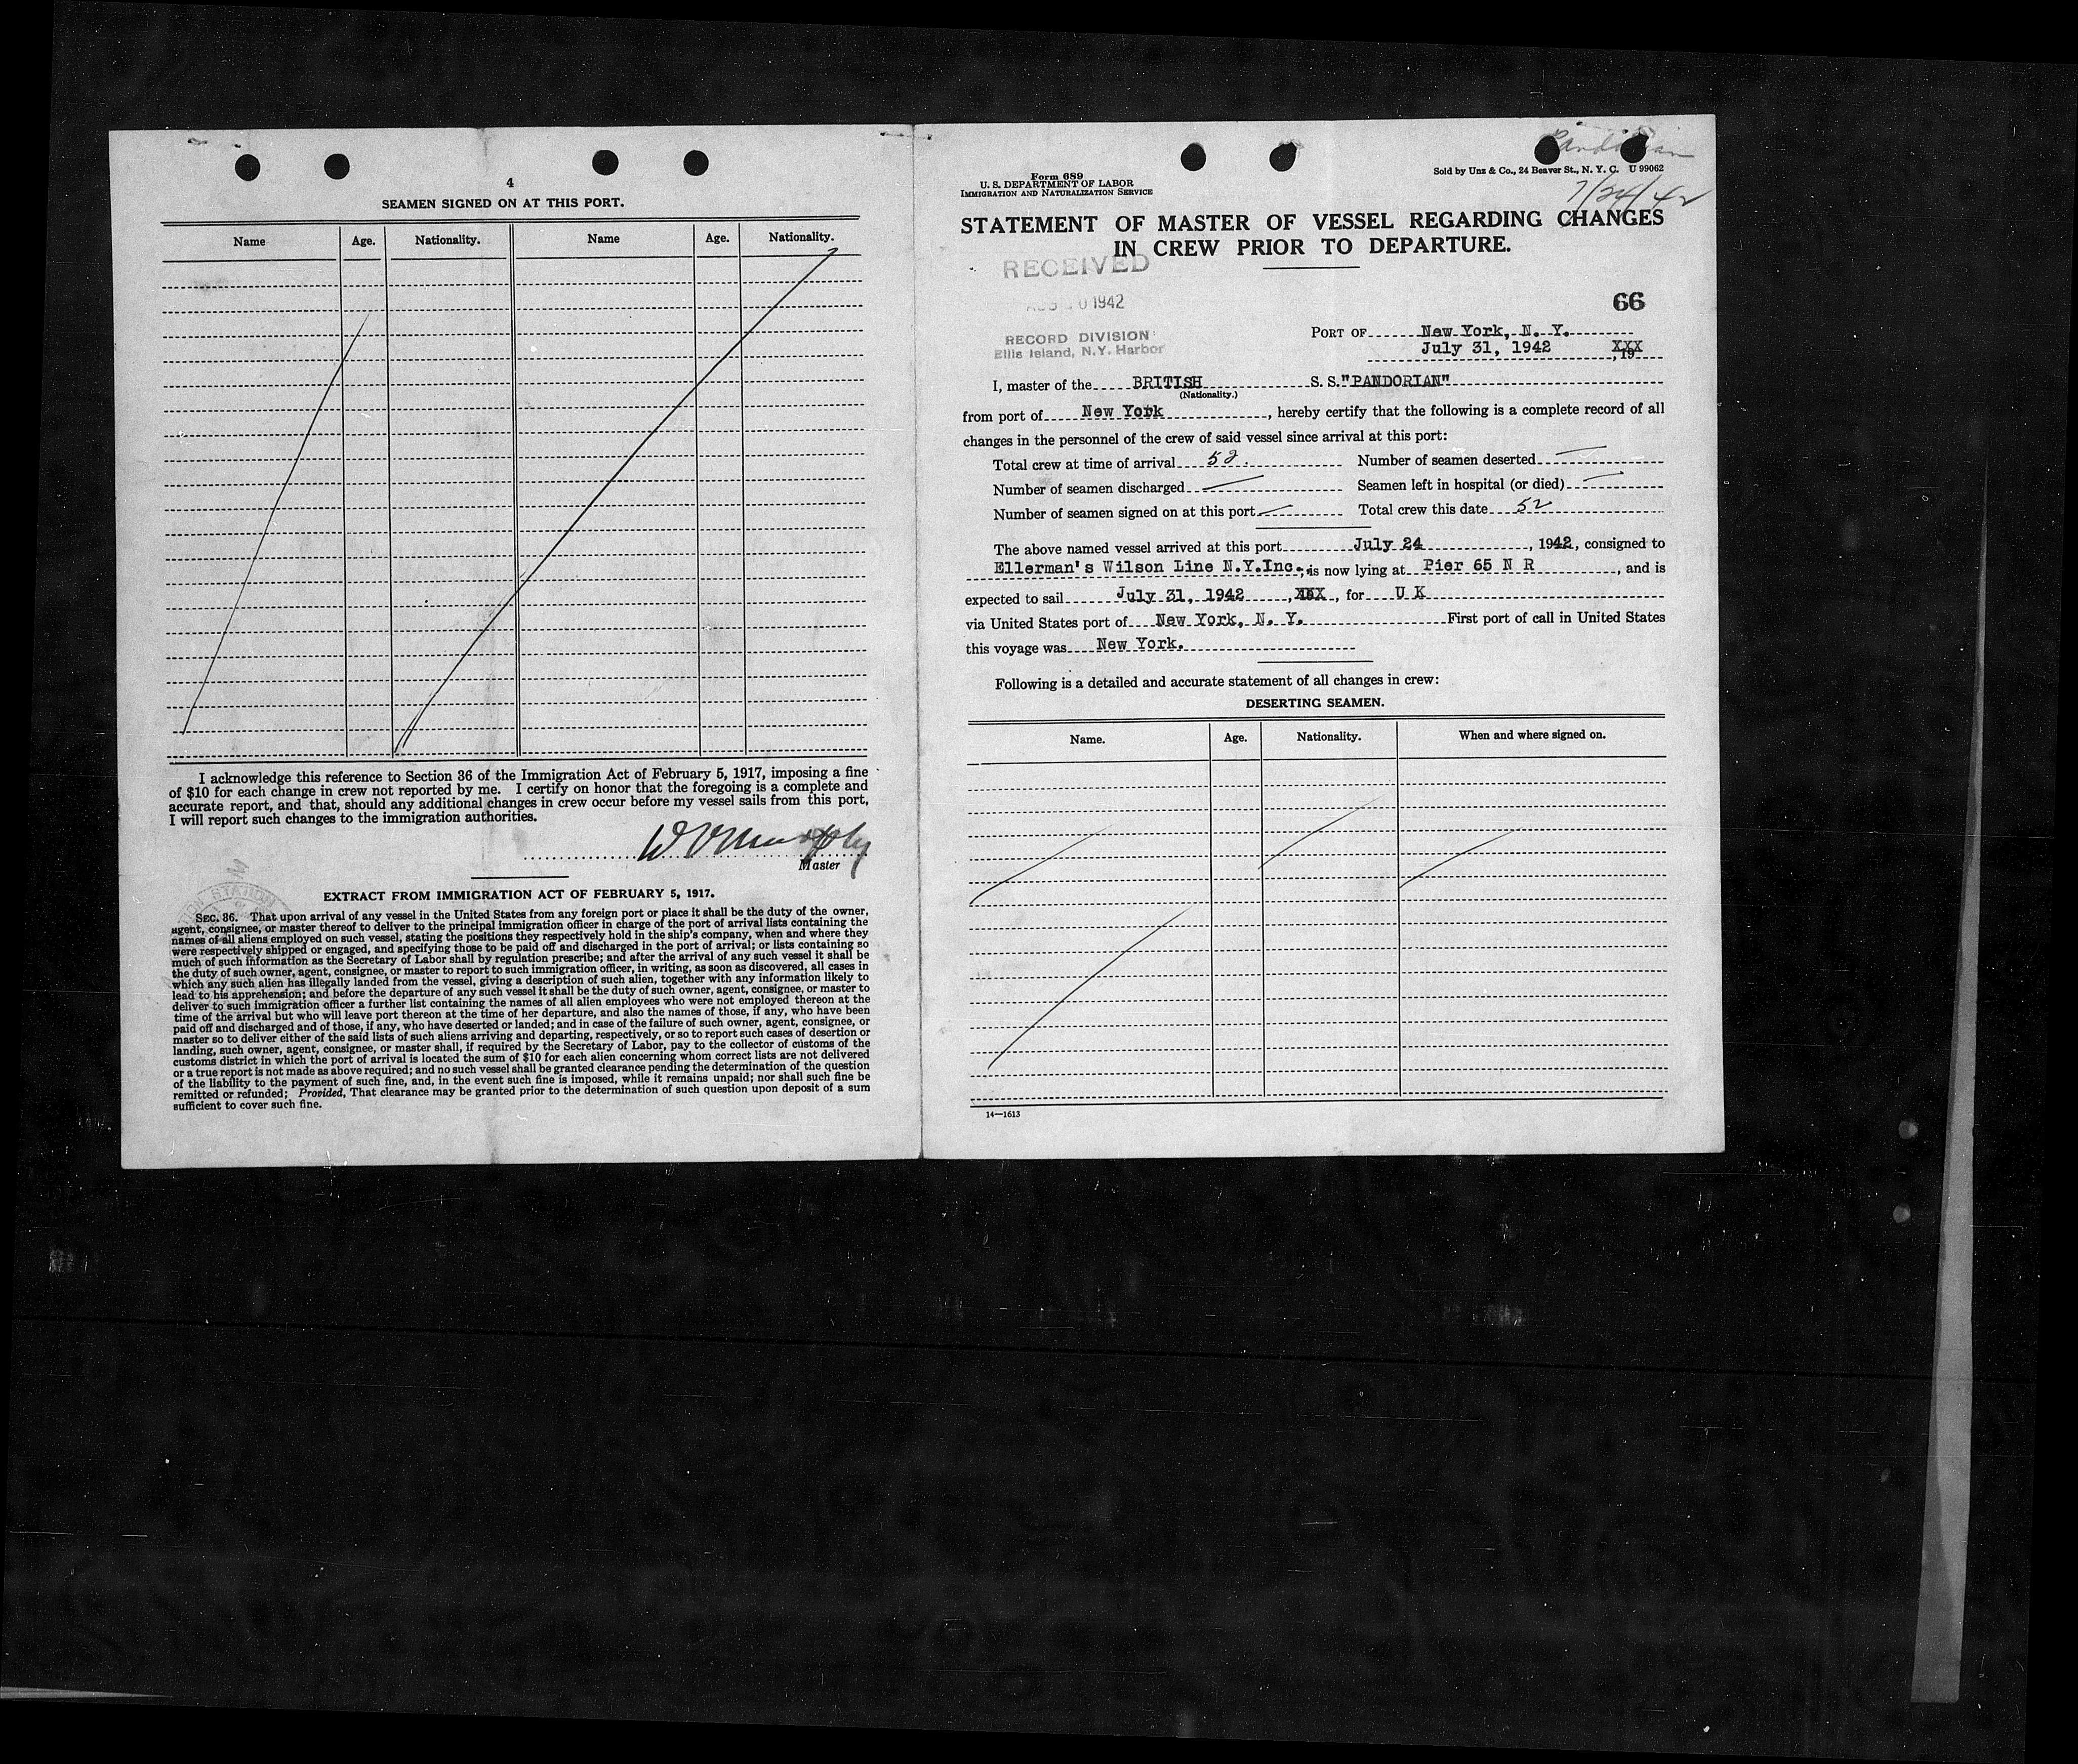 4
SEAMEN SIGNED ON AT THIS PORT.
Name Age. Nationality. Name Age. Nationality.
I acknowledge this reference to Section 36 of the Immigration Act of February 5, 1917, imposing a fine
of $10 for each change in crew not reported by me. I certify on honor that the foregoing is a complete and
accurate report, and that, should any additional changes in crew occur before my vessel sails from this port,
I will report such changes to the immigration authorities.
Master
EXTRACT FROM IMMIGRATION ACT OF FEBRUARY 5, 1917.
SEC. 36. That upon arrival of any vessel in the United States from any foreign port or place it shall be the duty of the owner,
agent, consignee, or master thereof to deliver to the principal immigration officer in charge of the port of arrival lists containing the
names of all aliens employed on such vessel, stating the positions they respectively hold in the ship's company, when and where they
were respectively shipped or engaged, and specifying those to be paid off and discharged in the port of arrival; or lists containing so
much of such information as the Secretary of Labor shall by regulation prescribe; and after the arrival of any such vessel it shall be
the duty of such owner, agent, consignee, or master to report to such immigration officer, in writing, as soon as discovered, all cases in
which any such alien has illegally landed from the vessel, giving a description of such alien, together with any information likely to
lead to his apprehension; and before the departure of any such vessel it shall be the duty of such owner, agent, consignee, or master to
deliver to such immigration officer a further list containing the names of all alien employees who were not employed thereon at the
time of the arrival but who will leave port thereon at the time of her departure, and also the names of those, if any, who have been
paid off and discharged and of those, if any, who have deserted or landed; and in case of the failure of such owner, agent, consignee, or
master so to deliver either of the said lists of such aliens arriving and departing, respectively, or so to report such cases of desertion or
landing, such owner, agent, consignee, or master shall, if required by the Secretary of Labor, pay to the collector of customs of the
customs district in which the port of arrival is located the sum of $10 for each alien concerning whom correct lists are not delivered
or a true report is not made as above required; and no such vessel shall be granted clearance pending the determination of the question
of the liability to the payment of such fine, and, in the event such fine is imposed, while it remains unpaid; nor shall such fine be
remitted or refunded; Provided, That clearance may be granted prior to the determination of such question upon deposit of a sum
sufficient to cover such fine.
Pandorian
Form 689
U. S. DEPARTMENT OF LABOR
IMMIGRATION AND NATURALIZATION SERVICE
Sold by Unz & Co., 24 Beaver St., N. Y. C. U 99062
7/24/42
STATEMENT OF MASTER OF VESSEL REGARDING CHANGES
IN CREW PRIOR TO DEPARTURE.
RECEIVED
1942
RECORD DIVISION
Ellis Island, N.Y. Harbor
66
PORT OF New York, N. Y.
July 31, 1942 XXX, 19
I, master of the BRITISH S. S. "PANDORIAN"
(Nationality.)
from port of New York, hereby certify that the following is a complete record of all
changes in the personnel of the crew of said vessel since arrival at this port:
Total crew at time of arrival 52. Number of seamen deserted
Number of seamen discharged Seamen left in hospital (or died)
Number of seamen signed on at this port Total crew this date 52
The above named vessel arrived at this port July 24, 1942, consigned to
Ellerman's Wilson Line N.Y.Inc., is now lying at Pier 65 N R, and is
expected to sail July 31, 1942, XXX, for U K
via United States port of New York, N. Y. First port of call in United States
this voyage was New York.
Following is a detailed and accurate statement of all changes in crew:
DESERTING SEAMEN.
Name. Age. Nationality. When and where signed on.
14—1613